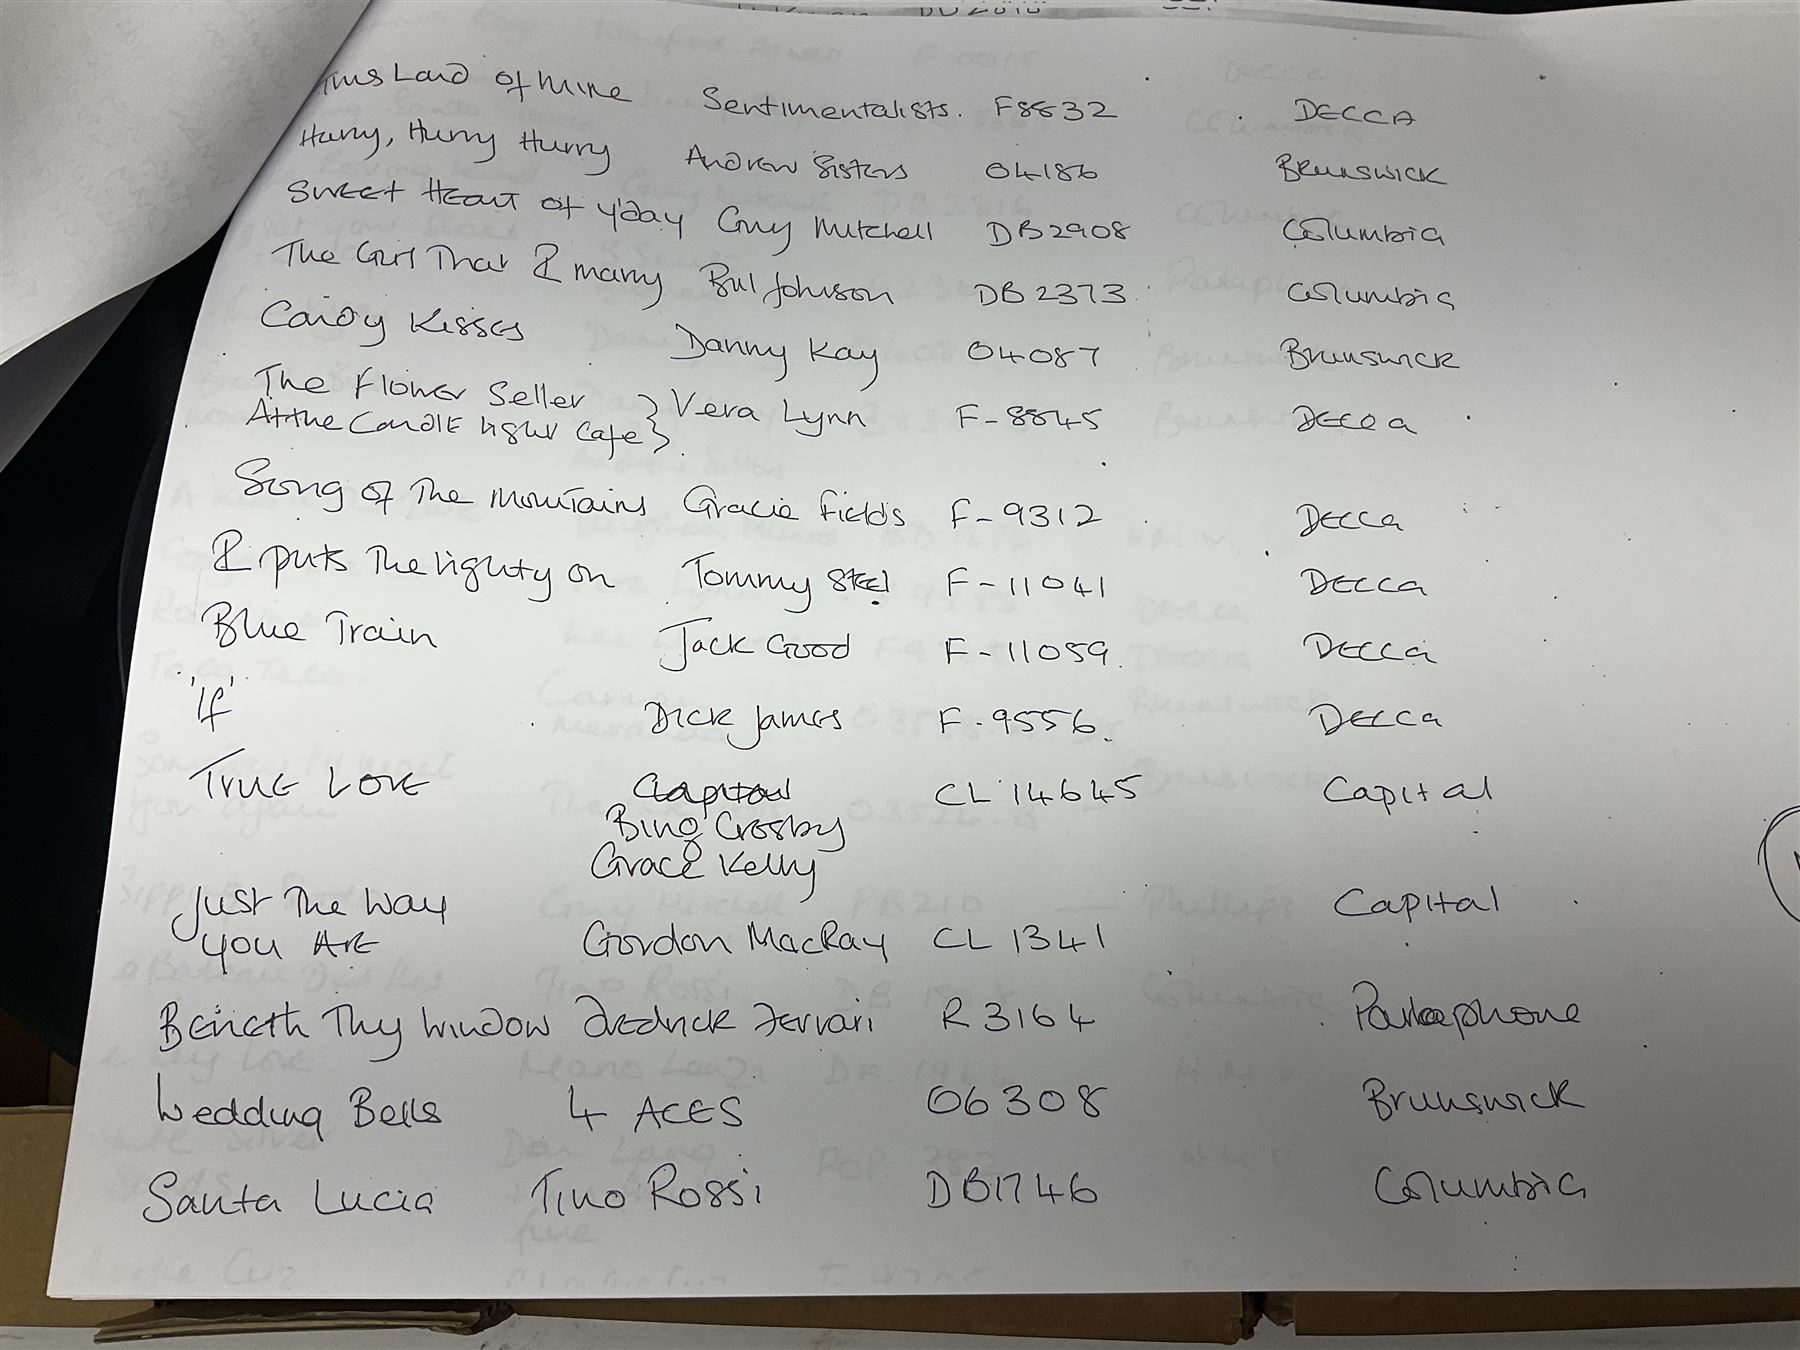 This Land of Mine Sentimentalists. F8832 DECCA
Hurry, Hurry Hurry Andrew Sisters 04186 Brunswick
Sweet Heart of y'day Guy Mitchell DB2908 Columbia
The Girl That I marry Bill Johnson DB2373 Columbia
Candy Kisses Danny Kay 04087 Brunswick
The Flower Seller
At the Candle light Cafe } Vera Lynn F-8845 Decca
Song of The Mountains Gracie Fields F-9312 Decca
I puts The lighty on Tommy Steel F-11041 Decca
Blue Train Jack Good F-11059. Decca
'If' Dick James F-9556. Decca
True Love Capital CL 14645 Capital
Bing Crosby
& Grace Kelly
Just The Way Capital
You Are Gordon MacRay CL 1341
Beneath Thy Window Fredrick Ferrari R3164 Parlaphone
Wedding Bells 4 ACES 06308 Brunswick
Santa Lucia Tino Rossi DB1746 Columbia